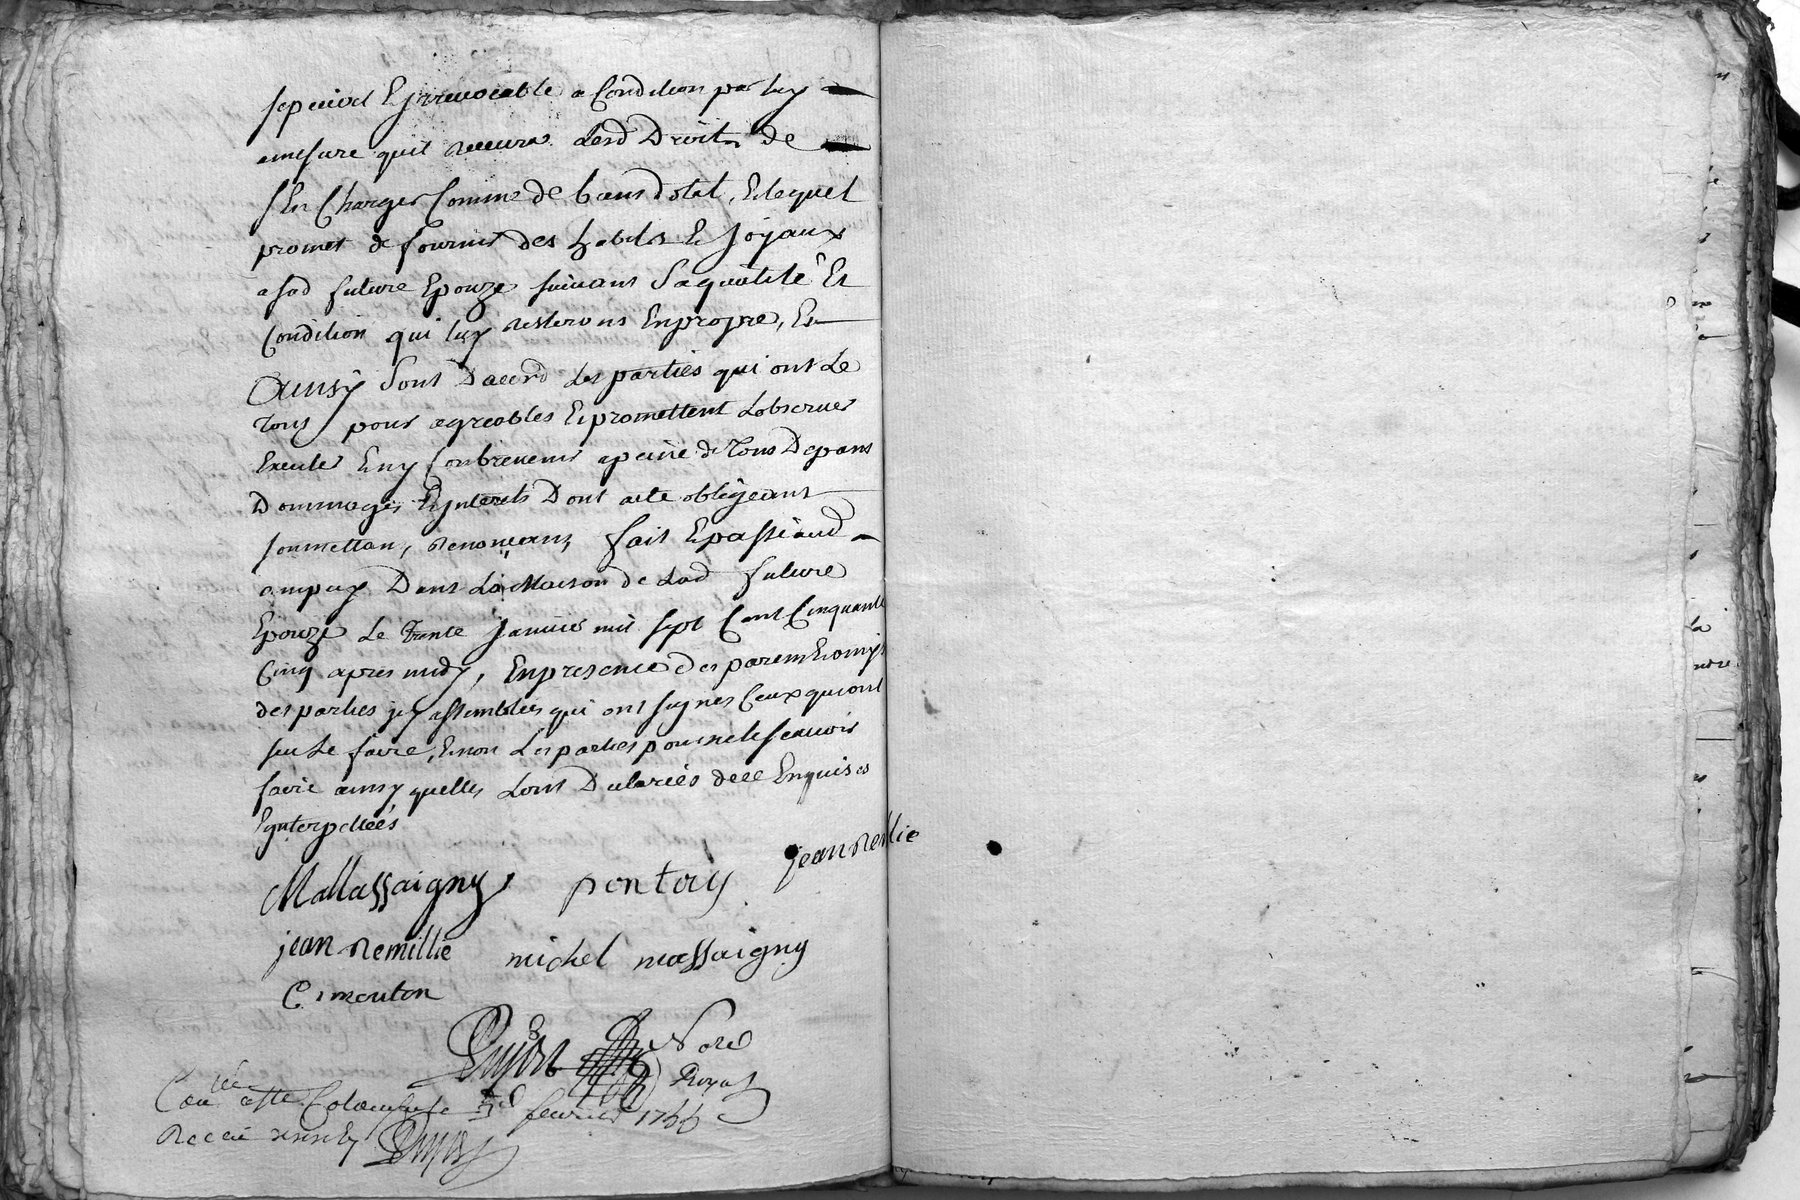 special Eyrrevocable a Condition par luy
amesure quil recevra. Lesd Droits de
sEn Charger Comme de biens dotal, Et lequel
promet de fournir des habits Et Joyaux
asad future Epouze suivant Saqualité Et
Condition qui luy resterons Enpropre, Et
Ainsy Sont Dacord Les parties qui ont Le
Tous pour agreables Et promettent Lobserver
Executer Eny Contrevenir apeine de Tous Depans
Dommages Eynterets Dont acte obligeant
soumettan, renoncans, fait Epassé aud
ampuy Dans La Maison de Lad future
Epouze Le Trente Janvier mil sept Cent Cinquante
Cinq apres midy, Enpresence des parens Et amys
des parties jcy assemblées qui ont signes Ceux qui ont
sceu Le faire, Et non Les parties pour ne le scavoir
faire ainsy quelles Lont Declarées de ce Enquises
Eynterpellées
Mallassaigny pentoy jean remillie
jean Remillie michel massaigny
C. mouton
Dujast Nore
Royal
Con.lle atte Colombe le 3d fevrier 1755
Receu